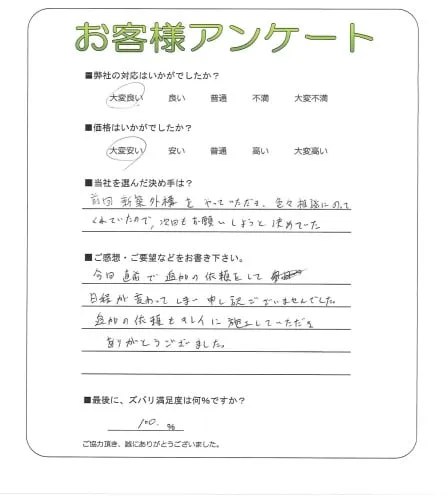 お客様アンケート
■弊社の対応はいかがでしたか?
大変良い 良い 普通 不満 大変不満
■価格はいかがでしたか?
大変安い 安い 普通 高い 大変高い
■当社を選んだ決め手は?
前回新築外構をやっていただき、色々相談にのって
くれていたので、次回もお願いしようと決めていた
■ご感想・ご要望などをお書き下さい。
今回直前で追加の依頼をして
日程が変わってしまい申し訳ございませんでした。
追加の依頼もキレイに施工していただき
ありがとうございました。
■最後に、ズバリ満足度は何%ですか?
100. %
ご協力頂き、誠にありがとうございました。